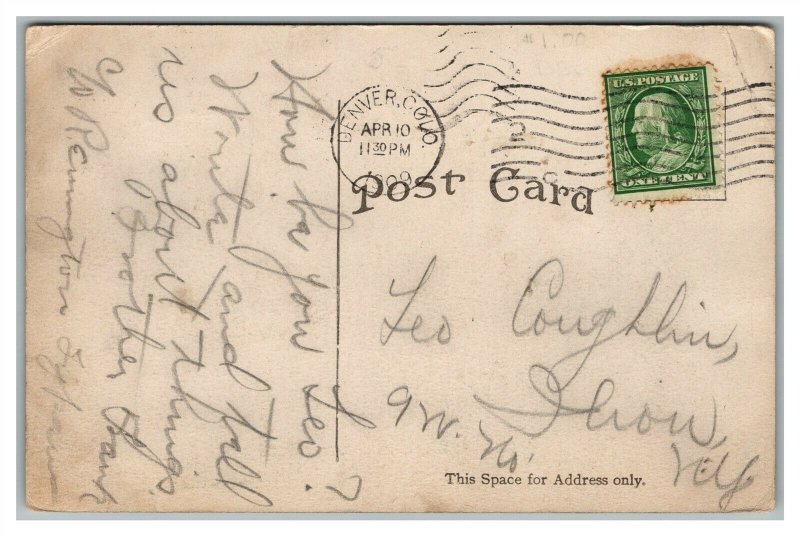 $1.00
DENVER, COLO
APR 10
11 30 PM
1909
U.S. POSTAGE
ONE CENT
Post Card
How be you Leo?
Write and tell
us about things
Brother Frank
Remington Typewr
Leo Coughlin,
Ilion,
N.Y.
This Space for Address only.